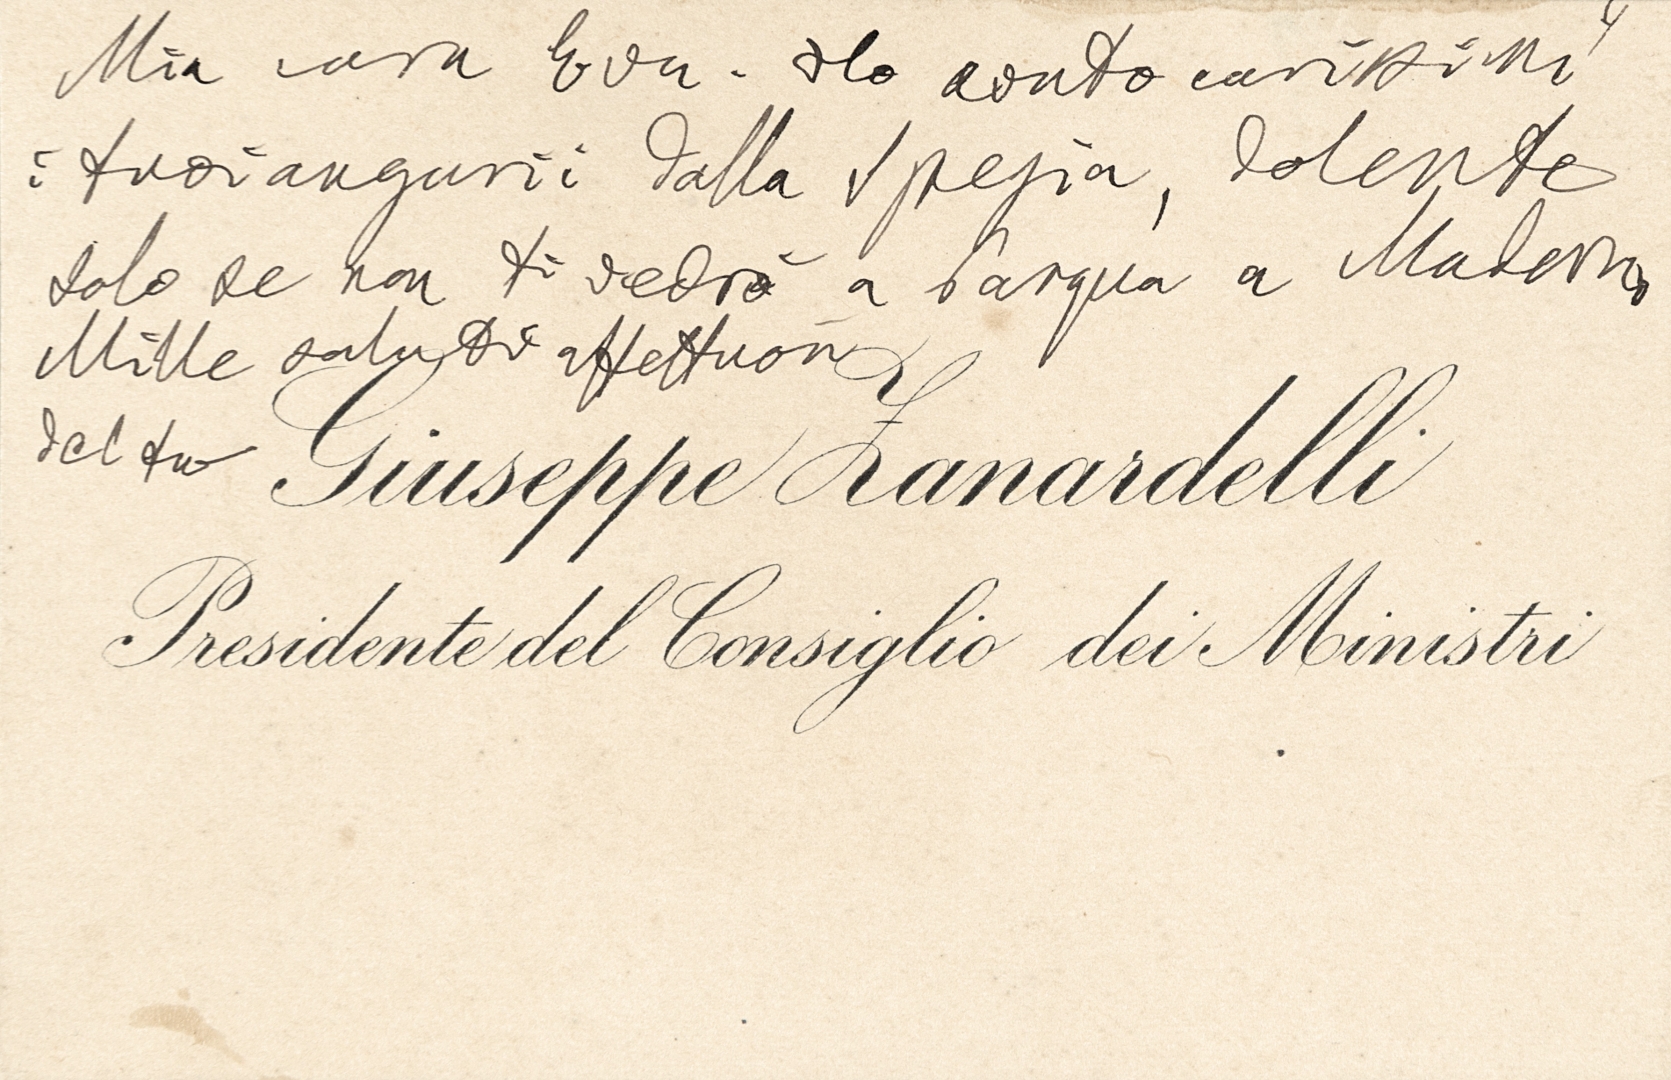 Mia cara Eva. Ho avuto carissimi
i tuoi augurii dalla Spezia, dolente
solo se non ti vedrò a Pasqua a Maderno
Mille saluti affettuosi
del tuo Giuseppe Zanardelli
Presidente del Consiglio dei Ministri